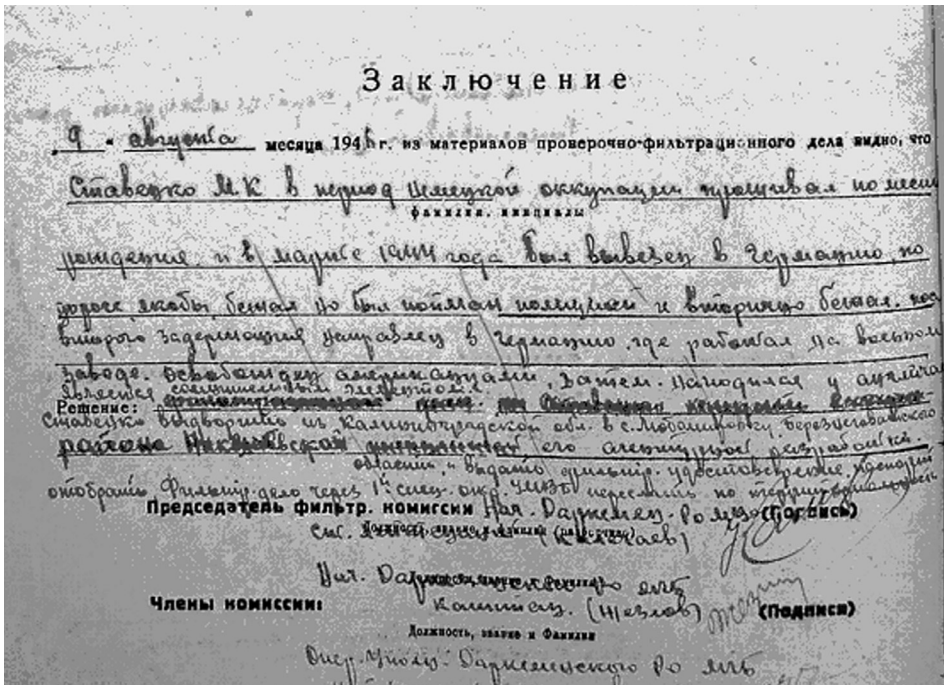 Заключение
„9" августа месяца 1946 г. из материалов проверочно-фильтрационного дела видно, что
Ставецко М К в период немецкой оккупации проживал по месту
фамилия, инициалы
рождения и в марте 1944 года был вывезен в Германию, по
дороге якобы бежал но был пойман полицией и вторично бежал. пос
второго задержания направлен в Германию, где работал на военном
заводе. Освобожден американцами, Затем находился у англичан
Является социальным элементом
Решение:
Ставецко выдворить из Калининградской обл. в с. Березнеговатского
района Николаевской его агентурной разработкой.
области, и выдать фильтр. удостоверение, паспорт
отобрать. Фильтр. дело через 1й спец. отд. УМВД переслать по территориальности
Председатель фильтр. комиссии Нач. Даркемен. Ро МВД (Подпись)
Должность, звание и фамилия
Нач. Ро МГБ
Члены комиссии: Капитан. (Жезлов) (Подписи)
Должность, звание и Фамилия
Опер. Уполн. Даркеменского Ро МГБ